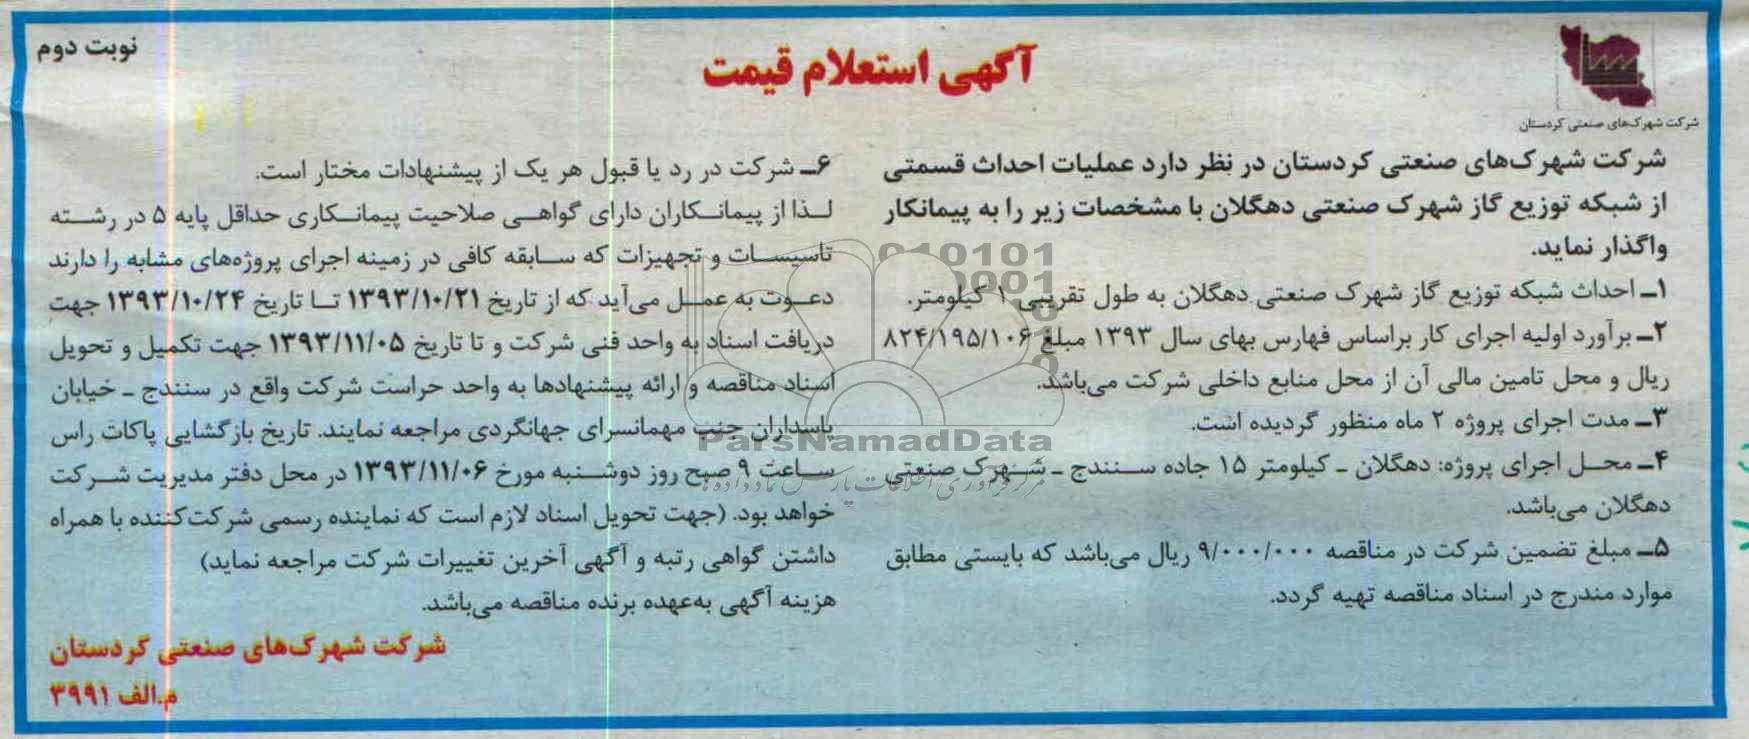 نوبت دوم
آگهی استعلام قیمت
شرکت شهرک‌های صنعتی کردستان
شرکت شهرک‌های صنعتی کردستان در نظر دارد عملیات احداث قسمتی
از شبکه توزیع گاز شهرک صنعتی دهگلان با مشخصات زیر را به پیمانکار
واگذار نماید.
۱ـ احداث شبکه توزیع گاز شهرک صنعتی دهگلان به طول تقریبی ۱ کیلومتر.
۲ـ برآورد اولیه اجرای کار براساس فهارس بهای سال ۱۳۹۳ مبلغ ۸۲۴/۱۹۵/۱۰۶
ریال و محل تامین مالی آن از محل منابع داخلی شرکت می‌باشد.
۳ـ مدت اجرای پروژه ۲ ماه منظور گردیده است.
۴ـ محل اجرای پروژه: دهگلان ـ کیلومتر ۱۵ جاده سنندج ـ شهرک صنعتی
دهگلان می‌باشد.
۵ـ مبلغ تضمین شرکت در مناقصه ۹/۰۰۰/۰۰۰ ریال می‌باشد که بایستی مطابق
موارد مندرج در اسناد مناقصه تهیه گردد.
۶ـ شرکت در رد یا قبول هر یک از پیشنهادات مختار است.
لذا از پیمانکاران دارای گواهی صلاحیت پیمانکاری حداقل پایه ۵ در رشته
تاسیسات و تجهیزات که سابقه کافی در زمینه اجرای پروژه‌های مشابه را دارند
دعوت به عمل می‌آید که از تاریخ ۱۳۹۳/۱۰/۲۱ تا تاریخ ۱۳۹۳/۱۰/۲۴ جهت
دریافت اسناد به واحد فنی شرکت و تا تاریخ ۱۳۹۳/۱۱/۰۵ جهت تکمیل و تحویل
اسناد مناقصه و ارائه پیشنهادها به واحد حراست شرکت واقع در سنندج ـ خیابان
پاسداران جنب مهمانسرای جهانگردی مراجعه نمایند. تاریخ بازگشایی پاکات راس
ساعت ۹ صبح روز دوشنبه مورخ ۱۳۹۳/۱۱/۰۶ در محل دفتر مدیریت شرکت
خواهد بود. (جهت تحویل اسناد لازم است که نماینده رسمی شرکت‌کننده با همراه
داشتن گواهی رتبه و آگهی آخرین تغییرات شرکت مراجعه نماید)
هزینه آگهی به‌عهده برنده مناقصه می‌باشد.
شرکت شهرک‌های صنعتی کردستان
م.الف ۳۹۹۱
ParsNamadData
مرکز فرآوری اطلاعات پارس نماد داده‌ها